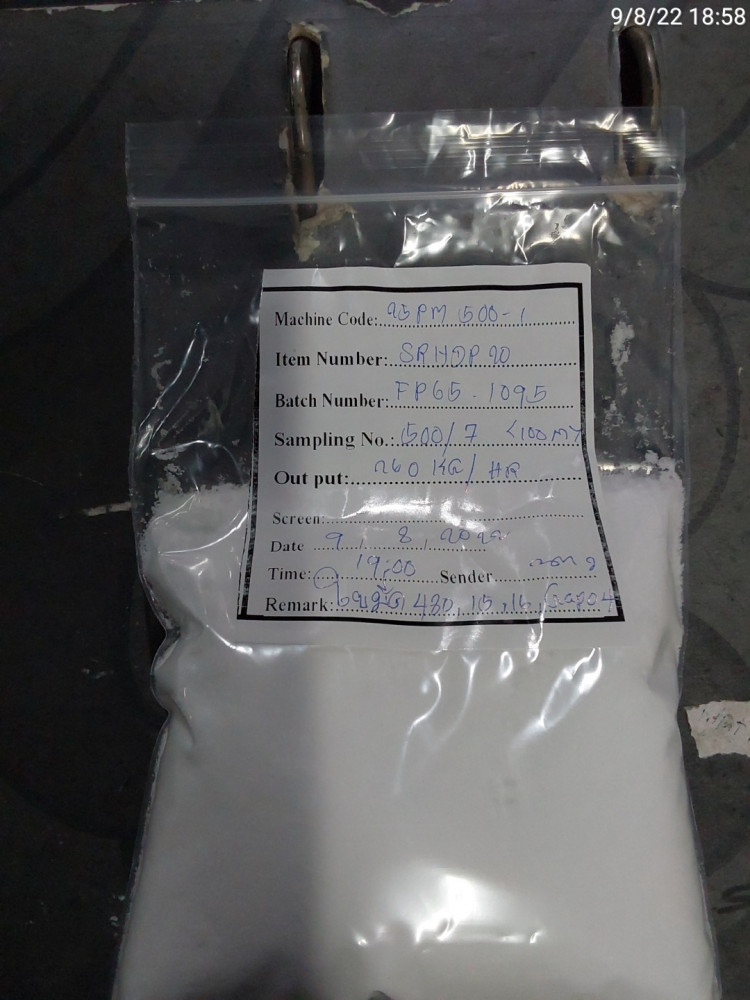 9/8/22 18:58
Machine Code: PM 500-1
Item Number: SRHDP 20
Batch Number: FP65-1095
Sampling No.: 500/7 <100MY
Out put: 260 KG/HR
Screen:
Date 9, 8, 2022
Time: 19:00 Sender
Remark: 480, 15, 16,